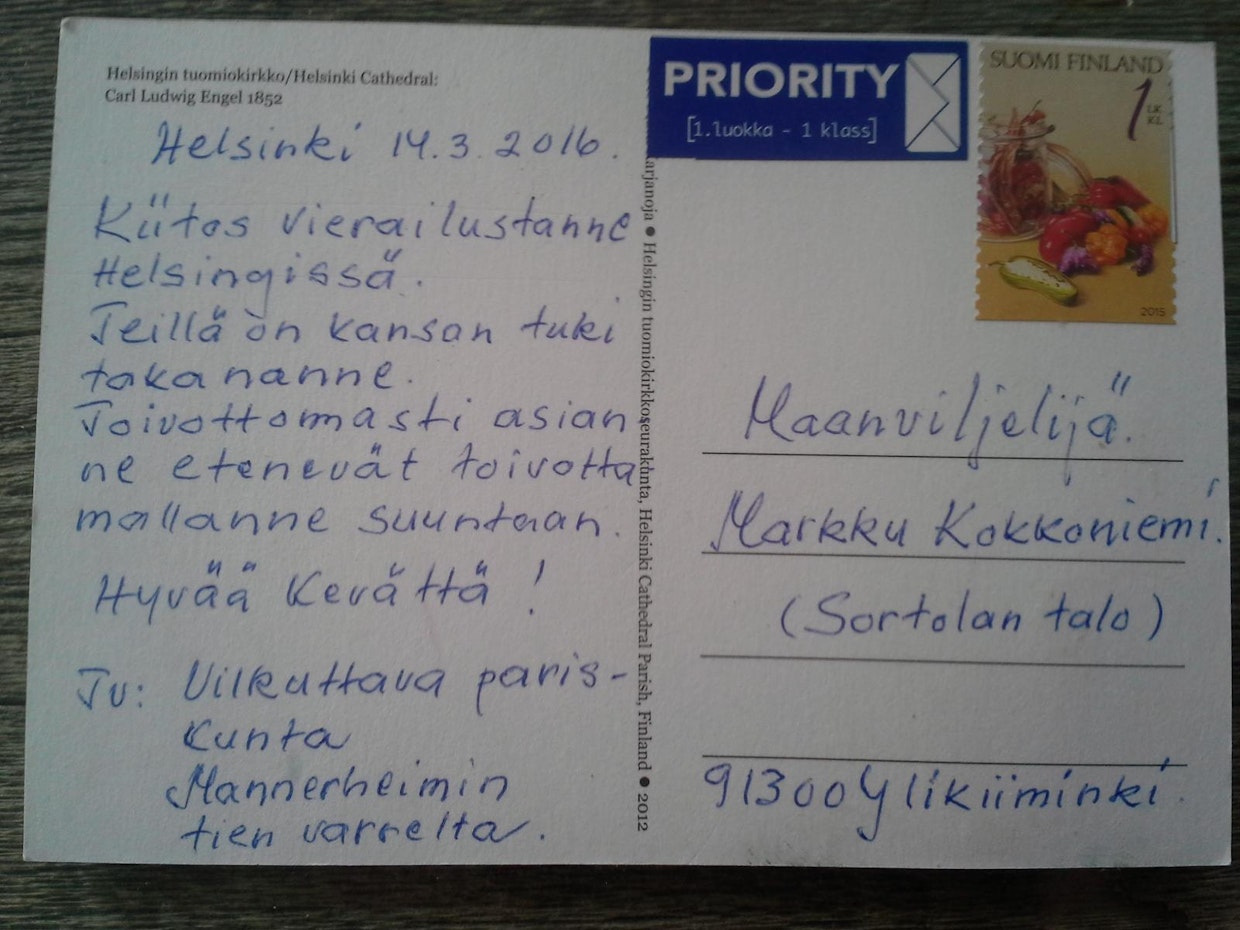 Helsingin tuomiokirkko/Helsinki Cathedral:
Carl Ludwig Engel 1852
Helsinki 14.3.2016.
Kiitos vierailustanne
Helsingissä.
Teillä on kansan tuki
takananne.
Toivottomasti asian
ne etenevät toivotta
mallanne suuntaan.
Hyvää Kevättä!
Tv: Vilkuttava paris-
kunta
Mannerheimin
tien varrelta.
arjanoja • Helsingin tuomiokirkkoseurakunta, Helsinki Cathedral Parish, Finland • 2012
PRIORITY
[1.luokka - 1 klass]
SUOMI FINLAND
1 LK
KL
2015
Maanviljelijä.
Markku Kokkoniemi.
(Sortolan talo)
91300 Ylikiiminki.